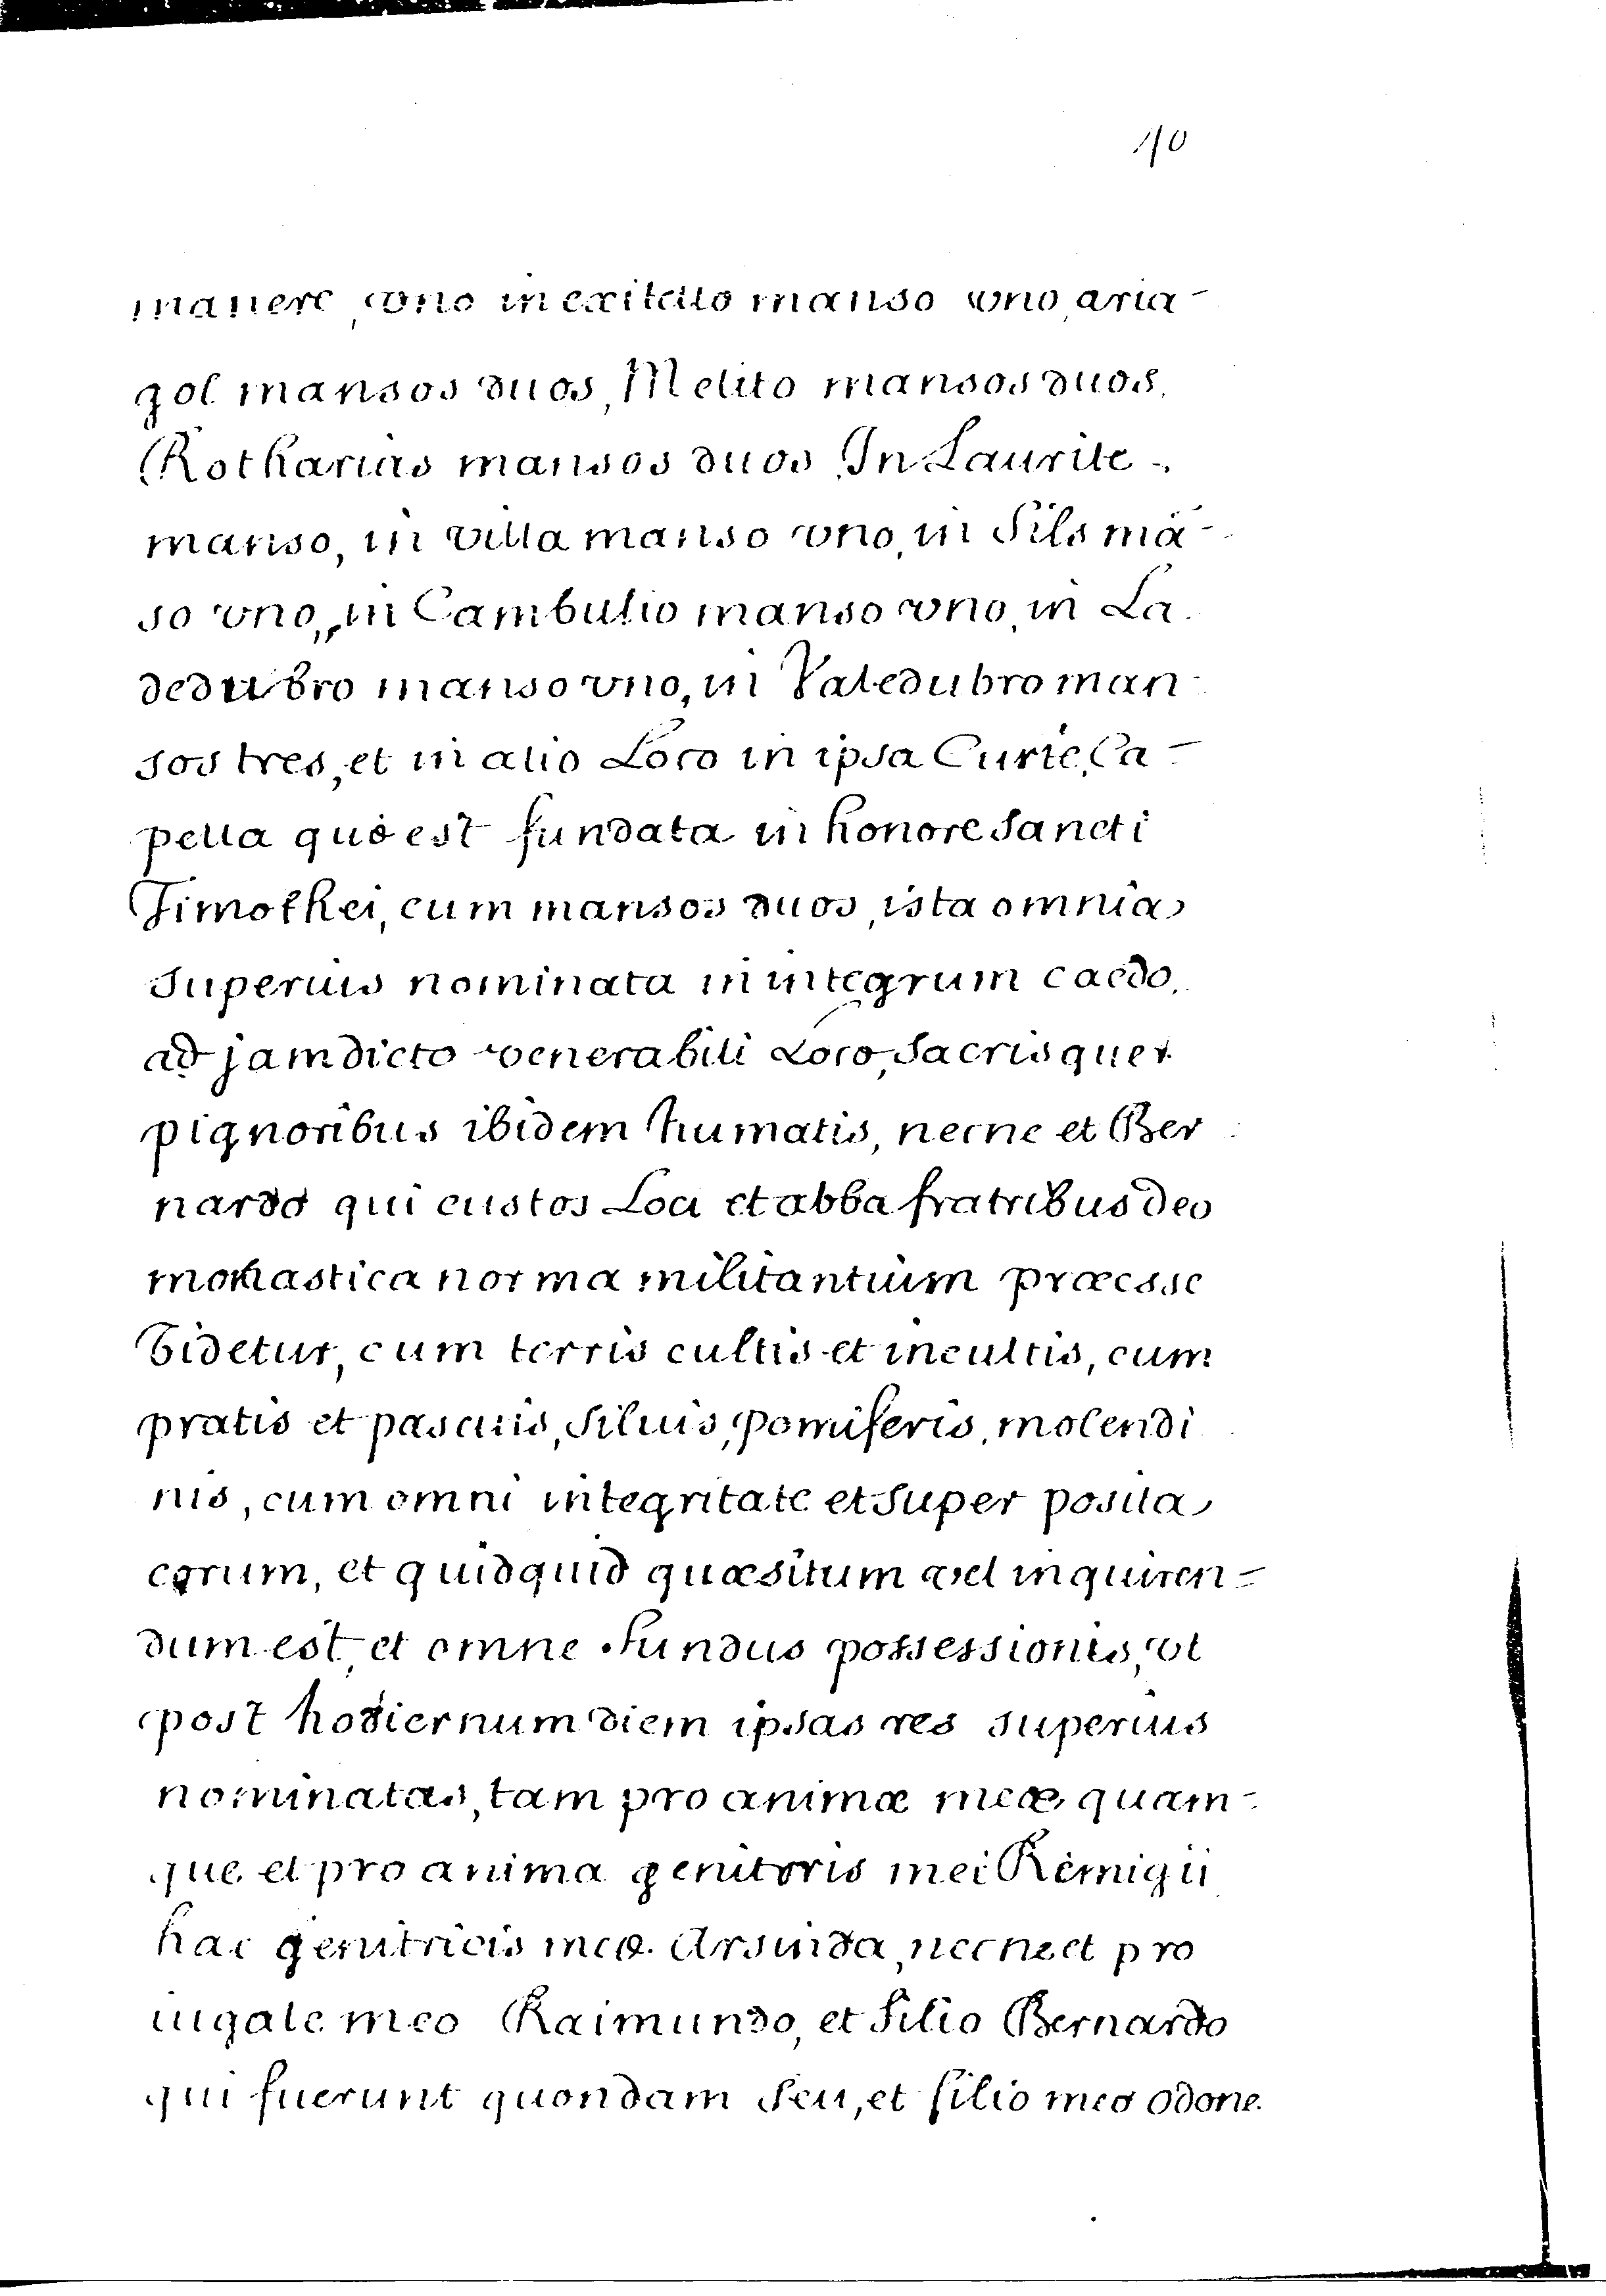 110
manere, vno in exitello manso vno, aria-
gol mansos duos, Melito mansos duos,
Rotharias mansos duos, In Laurite-
manso, in villa manso vno, in Sils mã-
so vno, in Cambulio manso vno, in La
dedubro manso vno, in Valedubro man
sos tres, et in alio Loco in ipsa Curte, Ca-
pella que est fundata in honore Sancti
Timothei, cum mansos duos, ista omnia
Superius nominata in integrum caedo,
ad jamdicto venerabili Loco, Sacrisque
pignoribus ibidem humatis, necne et Ber
nardo qui custos Loci et abba fratribus deo
monastica norma militantium præesse
Videtur, cum terris cultis et incultis, cum
pratis et pascuis, Siluis, pomiferis, molendi
nis, cum omni integritate et Super posita
eorum, et quidquid quæsitum vel inquiren-
dum est, et omne fundus possessionis, vt
post hodiernum diem ipsas res superius
nominatas, tam pro animæ meæ, quam-
que et pro anima genitoris mei Remigii
hac genitricis meæ Arsinda, necne et pro
iugale meo Raimundo, et filio Bernardo
qui fuerunt quondam Seu, et filio meo odone.